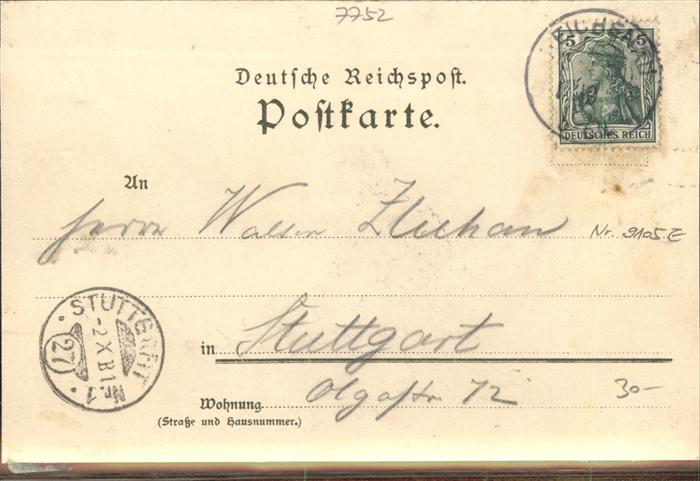 7752
5 5
DEUTSCHES REICH
Deutsche Reichspost.
Postkarte.
An
Herrn Walter
Nr. 9105 E
STUTTGART
-2 X B1
(27)
Nr. 1
in Stuttgart
Olgastr. 12
30-
Wohnung
(Straße und Hausnummer.)